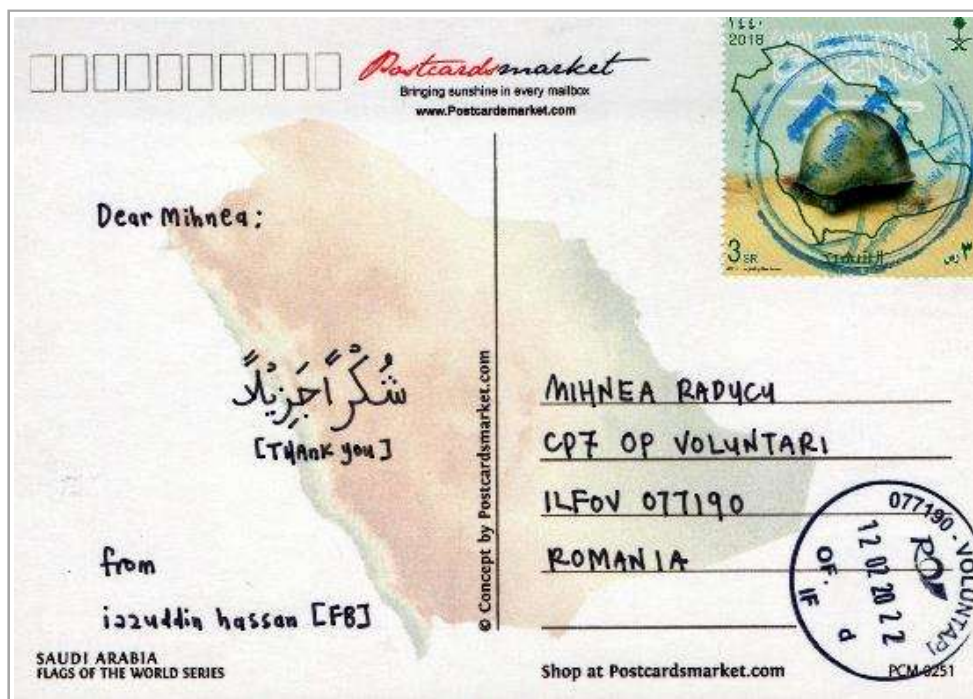 Postcardsmarket
Bringing sunshine in every mailbox
www.Postcardsmarket.com
١٤٤٠
2018
3 SR
٣
Dear Mihnea:
شُكْرًا جَزِيْلًا
[Thank you]
from
izzuddin hassan [FB]
SAUDI ARABIA
FLAGS OF THE WORLD SERIES
© Concept by Postcardsmarket.com
MIHNEA RADUCU
CP7 OP VOLUNTARI
ILFOV 077190
ROMANIA
077190 - VOLUNTARI
12 02 20 22
OF. IF
d
Shop at Postcardsmarket.com
PCM-0251